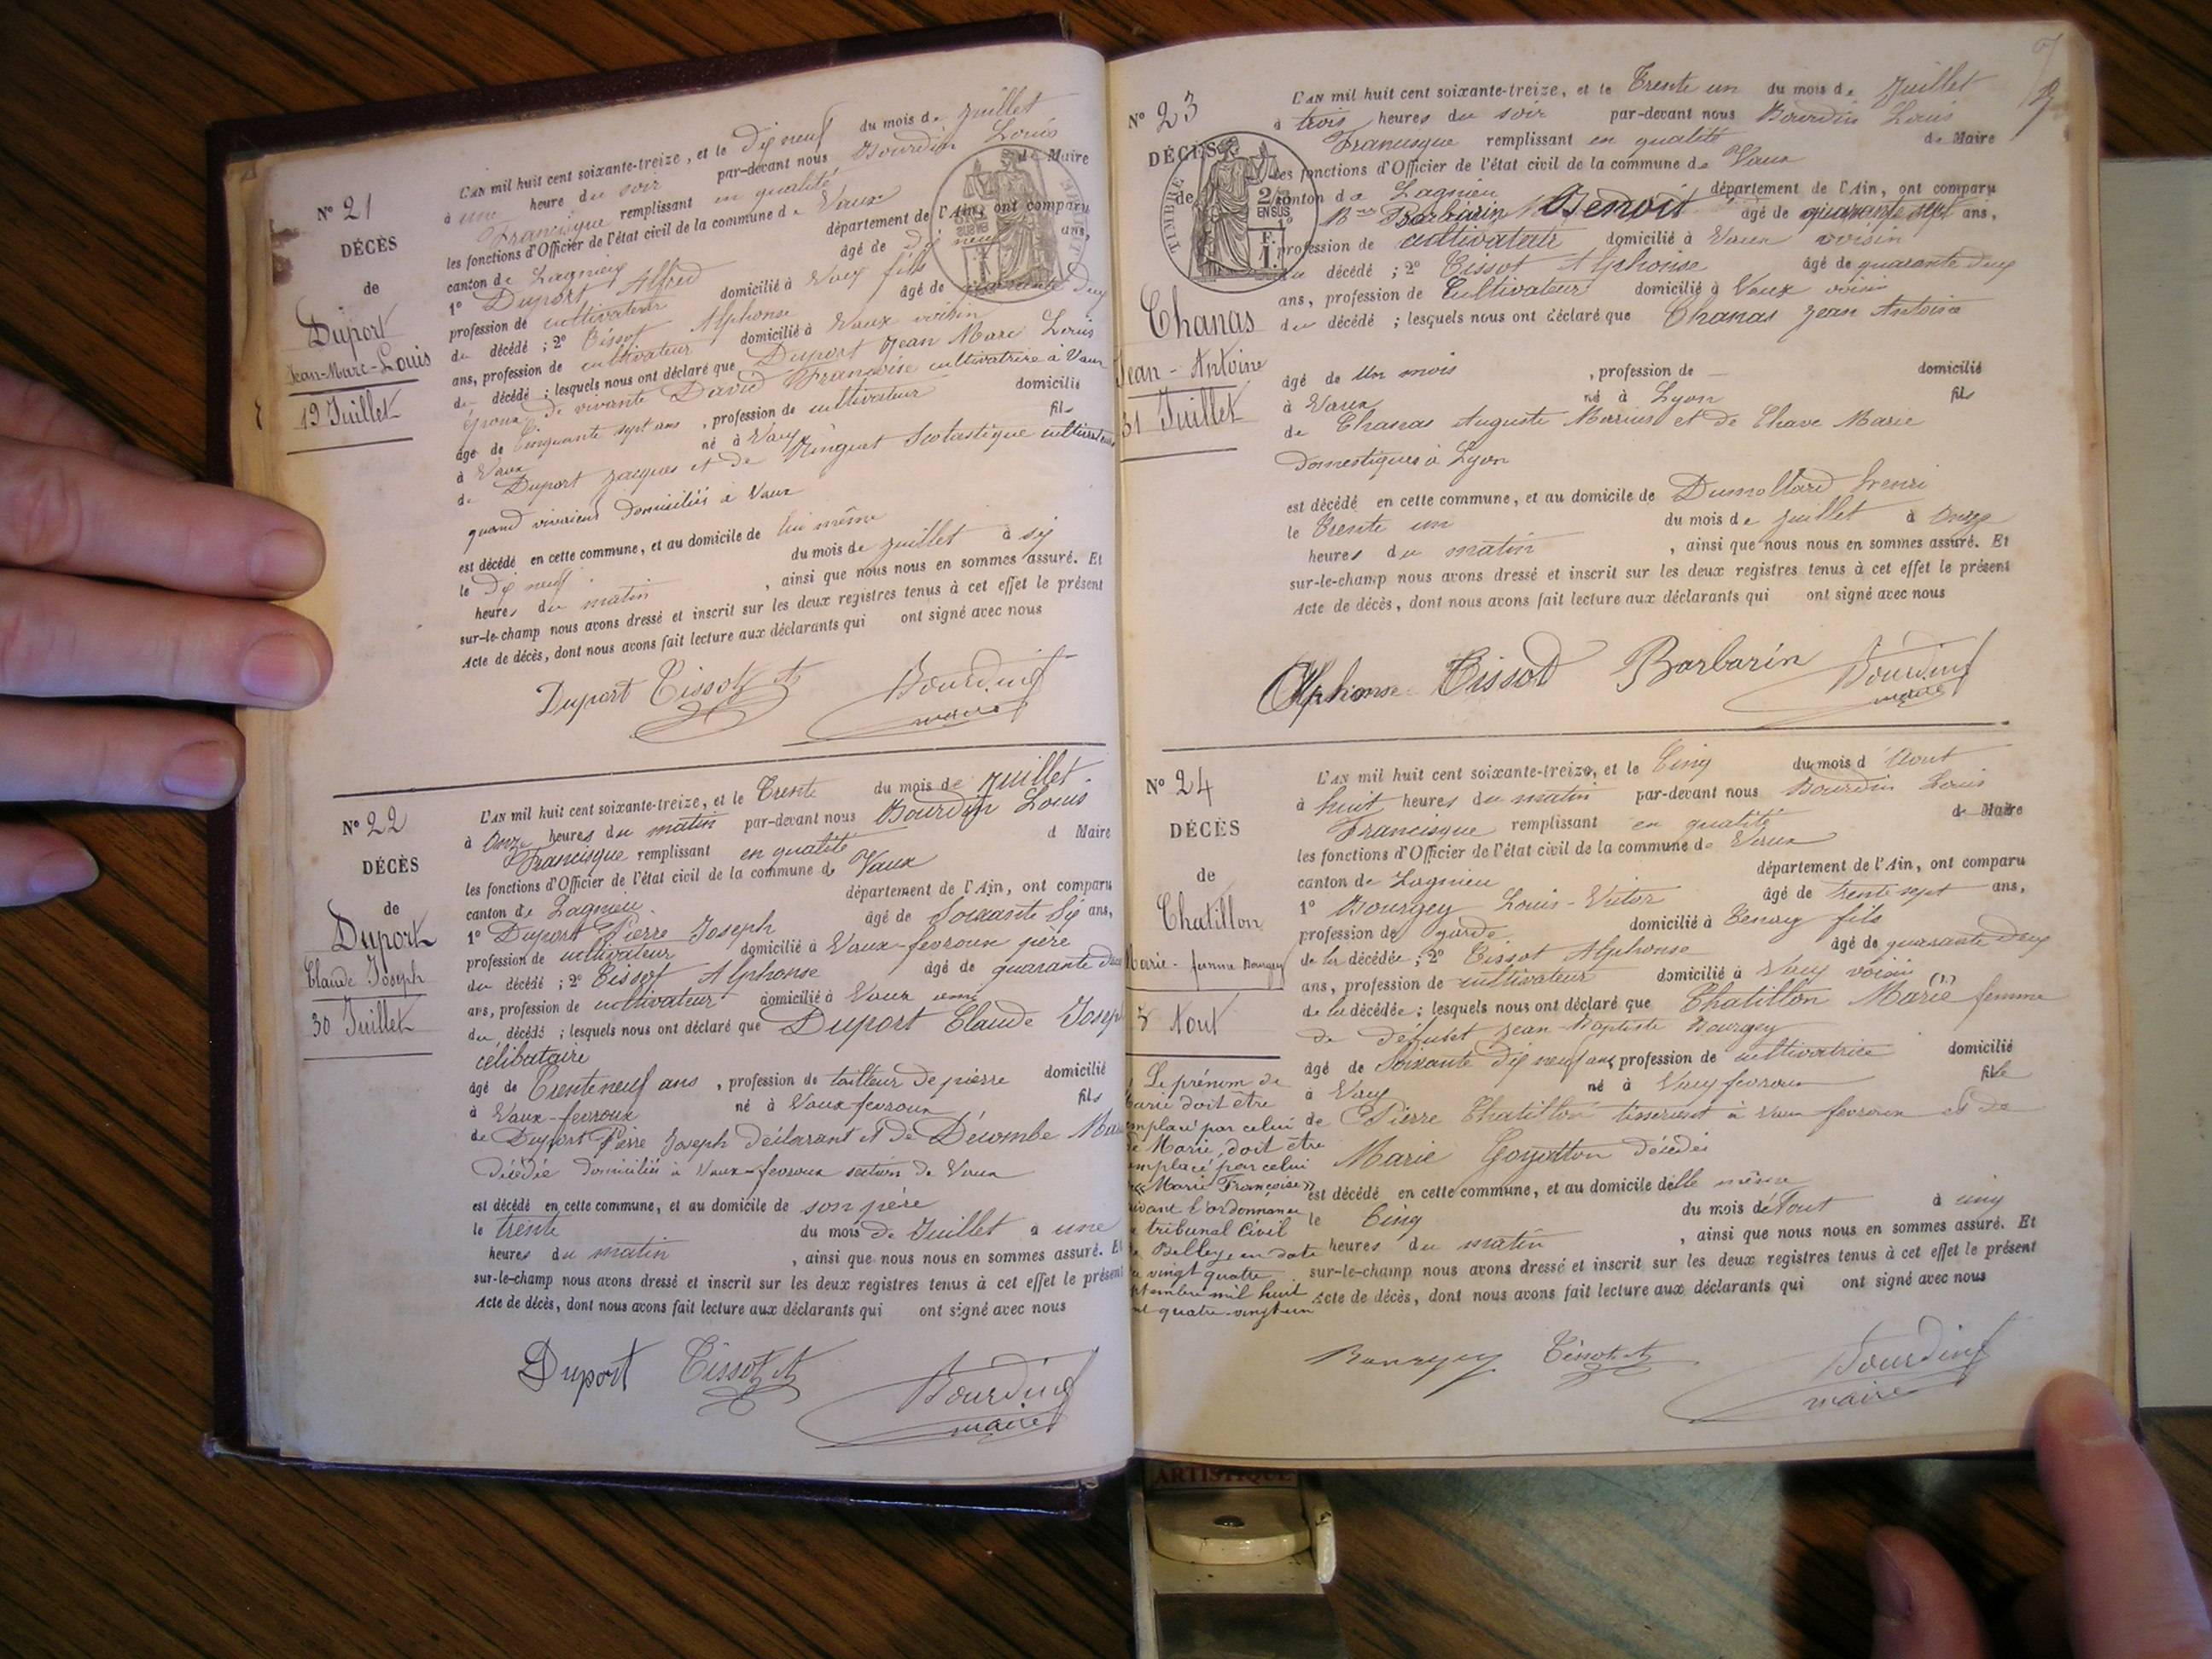 N° 21
DÉCÈS
de
Duport
Jean-Marc-Louis
19 Juillet
L'AN mil huit cent soixante-treize, et le Dix neuf du mois de Juillet
à une heure du soir par-devant nous Bourdin Louis
Francisque remplissant en qualité de Maire
les fonctions d'Officier de l'état civil de la commune de Vaux
canton de Lagnieu département de l'Ain, ont comparu
1° Duport Alfred âgé de dix neuf ans,
profession de cultivateur domicilié à Vaux fils
du décédé ; 2° Tissot Alphonse âgé de quarante deux
ans, profession de cultivateur domicilié à Vaux voisin
du décédé ; lesquels nous ont déclaré que Duport Jean Marc Louis
époux de vivante David Françoise cultivatrice à Vaux
âgé de Cinquante sept ans, profession de cultivateur domicilié
à Vaux né à Vaux fils
de Duport Jacques et de Scolastique cultivateurs
quand vivaient domiciliés à Vaux
est décédé en cette commune, et au domicile de lui même
le Dix neuf du mois de Juillet à six
heures du matin, ainsi que nous nous en sommes assuré. Et
sur-le-champ nous avons dressé et inscrit sur les deux registres tenus à cet effet le présent
Acte de décès, dont nous avons fait lecture aux déclarants qui ont signé avec nous
Duport Tissot A Bourdin
maire
N° 22
DÉCÈS
de
Duport
Claude Joseph
30 Juillet
L'AN mil huit cent soixante-treize, et le Trente du mois de Juillet
à Onze heures du matin par-devant nous Bourdin Louis
Francisque remplissant en qualité d Maire
les fonctions d'Officier de l'état civil de la commune de Vaux
canton de Lagnieu département de l'Ain, ont comparu
1° Duport Pierre Joseph âgé de Soixante six ans,
profession de cultivateur domicilié à Vaux-fevroux père
du décédé ; 2° Tissot Alphonse âgé de quarante deux
ans, profession de cultivateur domicilié à Vaux ami
du décédé ; lesquels nous ont déclaré que Duport Claude Joseph
célibataire
âgé de Trente neuf ans, profession de tailleur de pierre domicilié
à Vaux-fevroux né à Vaux fevroux fils
de Duport Pierre Joseph déclarant et de Décombe
Décédée domiciliés à Vaux-fevroux section de Vaux
est décédé en cette commune, et au domicile de son père
le trente du mois de Juillet à une
heures du matin, ainsi que nous nous en sommes assuré. Et
sur-le-champ nous avons dressé et inscrit sur les deux registres tenus à cet effet le présent
Acte de décès, dont nous avons fait lecture aux déclarants qui ont signé avec nous
Duport Tissot A Bourdin
maire
N° 23
DÉCÈS
de
TIMBRE
2/10
EN SUS
F.
1.
Chanas
Jean-Antoine
31 Juillet
L'AN mil huit cent soixante-treize, et le Trente un du mois de Juillet
à trois heures du soir par-devant nous Bourdin Louis
Francisque remplissant en qualité de Maire
les fonctions d'Officier de l'état civil de la commune de Vaux
canton de Lagnieu département de l'Ain, ont comparu
1° Barbarin Benoit âgé de quarante sept ans,
profession de cultivateur domicilié à Vaux voisin
du décédé ; 2° Tissot Alphonse âgé de quarante deux
ans, profession de Cultivateur domicilié à Vaux voisin
du décédé ; lesquels nous ont déclaré que Chanas Jean Antoine
âgé de Un mois, profession de — domicilié
à Vaux né à Lyon fils
de Chanas Auguste Marius et de Chave Marie
Domestiques à Lyon
est décédé en cette commune, et au domicile de Dumollard Henri
le Trente un du mois de Juillet à Onze
heures du matin, ainsi que nous nous en sommes assuré. Et
sur-le-champ nous avons dressé et inscrit sur les deux registres tenus à cet effet le présent
Acte de décès, dont nous avons fait lecture aux déclarants qui ont signé avec nous
Alphonse Tissot Barbarin Bourdin
maire
N° 24
DÉCÈS
de
Chatillon
Marie-femme Bourgey
5 Aout
L'AN mil huit cent soixante-treize, et le Cinq du mois d'Aout
à huit heures du matin par-devant nous Bourdin Louis
Francisque remplissant en qualité de Maire
les fonctions d'Officier de l'état civil de la commune de Vaux
canton de Lagnieu département de l'Ain, ont comparu
1° Bourgey Louis-Victor âgé de trente sept ans,
profession de garde domicilié à Tenay fils
de la décédée ; 2° Tissot Alphonse âgé de quarante deux
ans, profession de cultivateur domicilié à Vaux voisin
de la décédée ; lesquels nous ont déclaré que Chatillon Marie (1) femme
de défunt Jean-Baptiste Bourgey
âgé de Soixante dix neuf ans, profession de cultivatrice domicilié
à Vaux né à Vaux fevroux fille
de Pierre Chatillon tisserant à Vaux fevroux et de
Marie décédés
est décédé en cette commune, et au domicile d'elle même
le Cinq du mois d'Aout à cinq
heures du matin, ainsi que nous nous en sommes assuré. Et
sur-le-champ nous avons dressé et inscrit sur les deux registres tenus à cet effet le présent
Acte de décès, dont nous avons fait lecture aux déclarants qui ont signé avec nous
Le prénom de
Marie doit être
remplacé par celui
de Marie, doit être
remplacé par celui
de «Marie Françoise»
suivant l'ordonnance
du tribunal Civil
de Belley en date
du vingt quatre
septembre mil huit
cent quatre-vingt un
Bourgey Tissot A Bourdin
maire
ARTISTIQUE